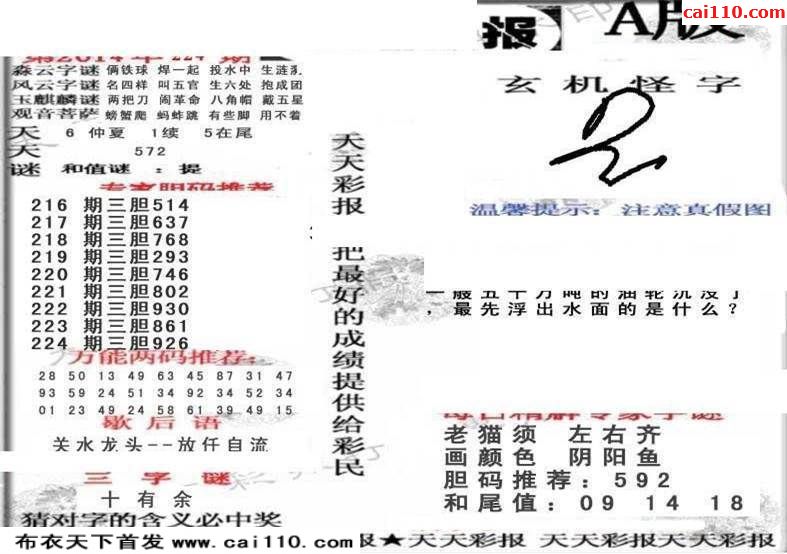 cai110.com
报】 A版
第2014年224期
森云字谜 俩铁球 焊一起 投水中 生涟漪
风云字谜 名四样 叫五官 生六处 抱成团
玉麒麟谜 两把刀 闹革命 八角帽 戴五星
观音菩萨 螃蟹爬 蚂蚱跳 有些脚 用不着
天 6 仲夏 1续 5在尾
天 572
谜 和值谜 : 提
专家胆码推荐
216 期三胆514
217 期三胆637
218 期三胆768
219 期三胆293
220 期三胆746
221 期三胆802
222 期三胆930
223 期三胆861
224 期三胆926
万能两码推荐:
28 50 13 49 63 45 87 31 47
93 59 24 51 34 92 34 52 34
01 23 49 24 58 61 39 49 15
歇后语
关水龙头--放任自流
三字谜
十有余
猜对字的含义必中奖
天天彩报 把最好的成绩提供给彩民
玄机怪字
温馨提示: 注意真假图
一艘五千万吨的油轮沉没了
，最先浮出水面的是什么?
每日精解专家字谜
老猫须 左右齐
画颜色 阴阳鱼
胆码推荐:592
和尾值:09 14 18
布衣天下首发 www.cai110.com 报★天天彩报 天天彩报天天彩报